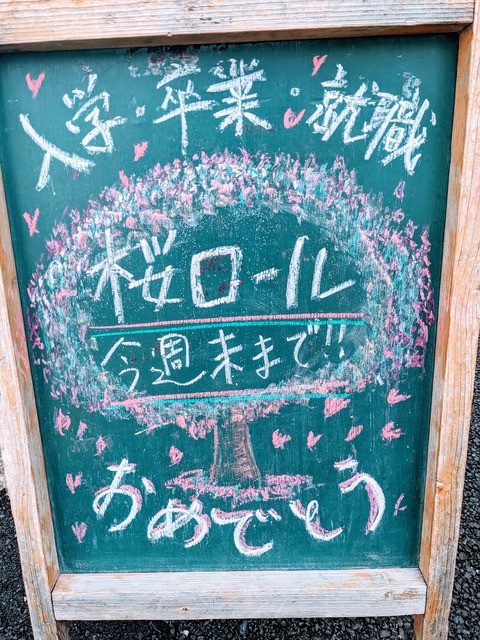 入学・卒業・就職
桜ロール
今週末まで!!
おめでとう